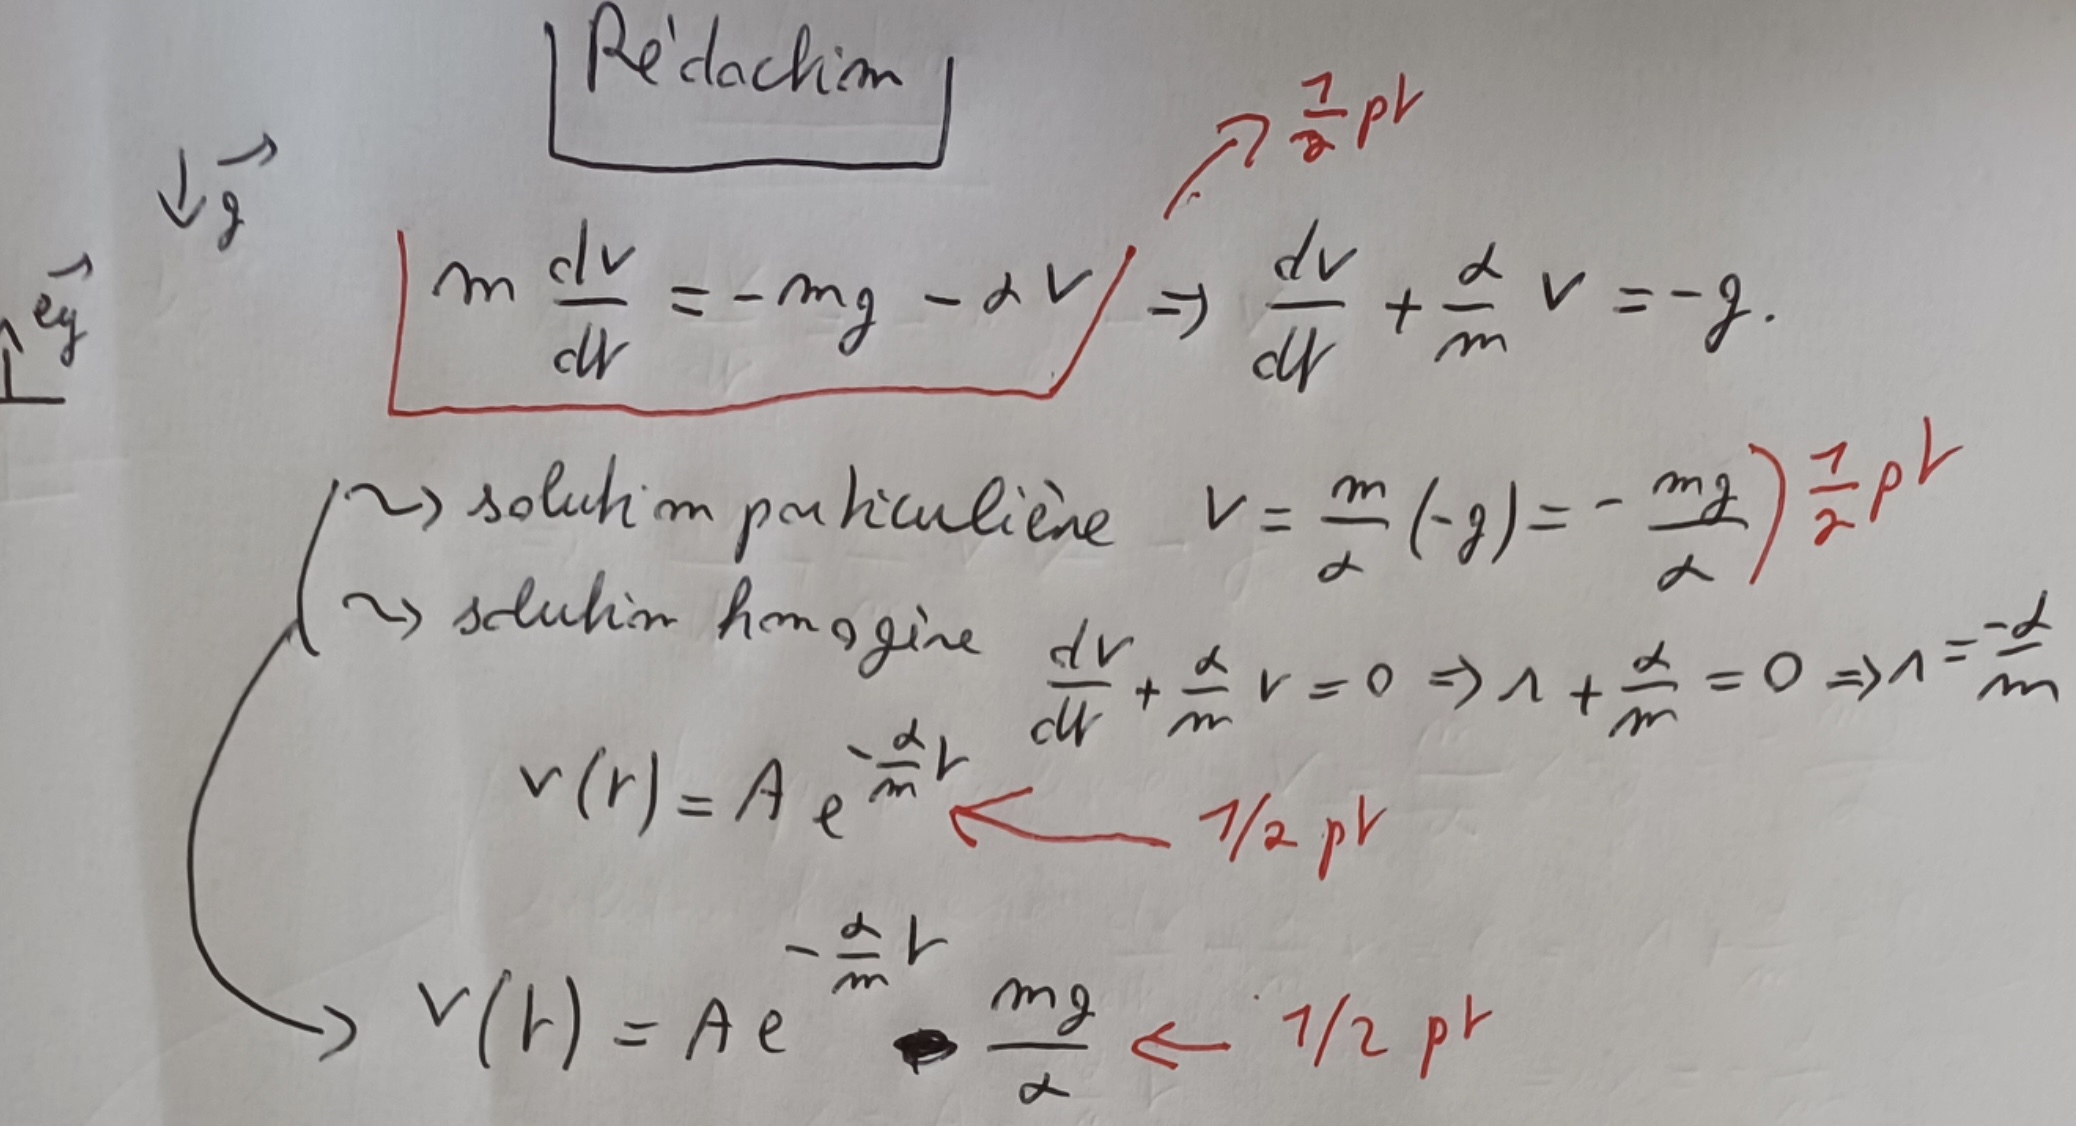 Rédaction
1/2 pt
↓ g⃗
e⃗y
m dv/dt = -mg - αv ⇒ dv/dt + α/m v = -g.
⤳ solution particulière v = m/α (-g) = - mg/α ) 1/2 pt
⤳ solution homogène dv/dt + α/m v = 0 ⇒ r + α/m = 0 ⇒ r = -α/m
v(t) = A e^(-α/m t) ← 1/2 pt
→ v(t) = A e^(-α/m t) - mg/α ← 1/2 pt